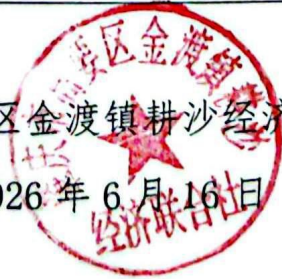 区金渡镇耕沙经济
026 年 6 月 16 日
区金渡镇
经济联合社